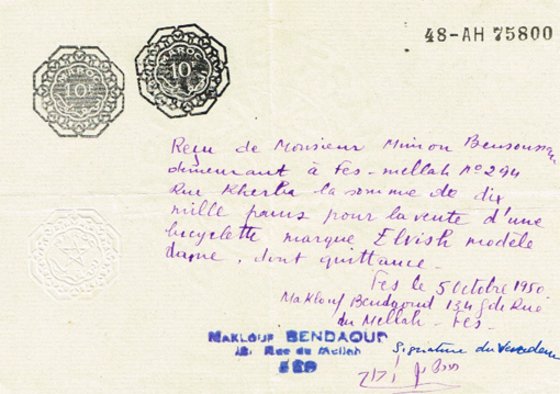 48-AH 75800
MAROC
10F
MAROC
10F
Reçu de Monsieur Mimon Bensoussan
demeurant à Fes-mellah No 294
Rue Kherba la somme de dix
mille francs pour la vente d'une
bicyclette marque Elvish modèle
dame, dont quittance.
Fes le 5 Octobre 1950
Maklouf Bendaoud 134 Gde Rue
du Mellah - Fes -
MAKLOUF BENDAOUD
Rue du Mellah
FES
Signature du Vendeur